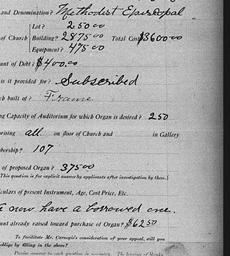 and Denomination? Methodist Episcopal
Lot? 250 00
of Church Building? 2875 00 Total Cost $3600 00
Equipment? 475 00
unt of Debt? $400.00
it is provided for? Subscribed
ch built of? Frame
ng Capacity of Auditorium for which Organ is desired? 250
prising all on floor of Church and in Gallery
mbership? 107
of proposed Organ? 375 00
(This question is for explicit answer by applicants after investigation by them.)
iculars of present Instrument, Age, Cost Price, Etc.
We now have a borrowed one.
unt already raised toward purchase of Organ? $62.50
To facilitate Mr. Carnegie's consideration of your appeal, will you
oblige by filling in the above?